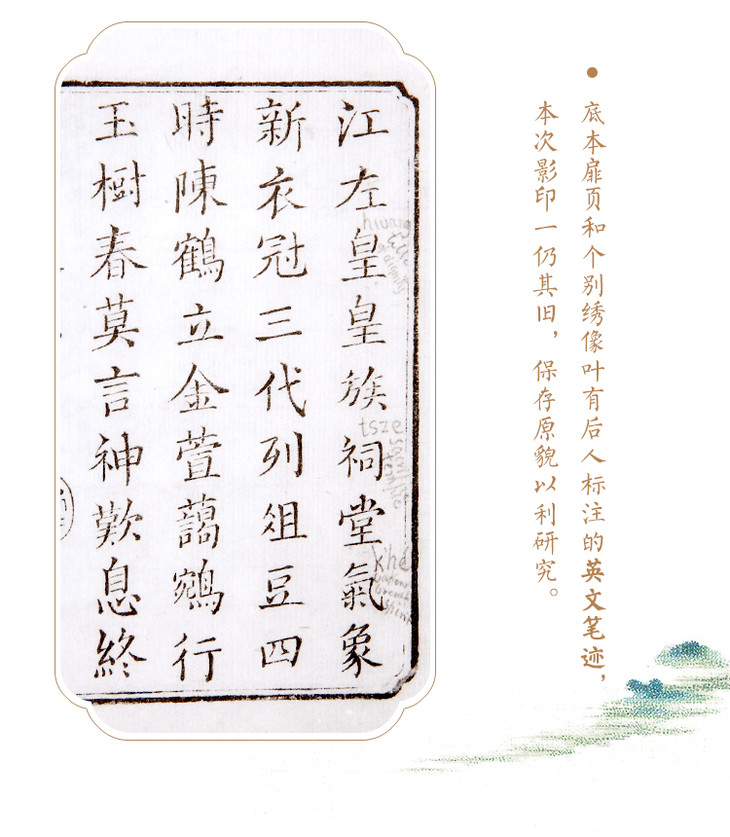 底本扉页和个别绣像叶有后人标注的英文笔迹，
本次影印一仍其旧，保存原貌以利研究。
江左皇皇族祠堂氣象
新衣冠三代列俎豆四
時陳鶴立金萱藹鵷行
玉樹春莫言神歎息終
tsze
khé